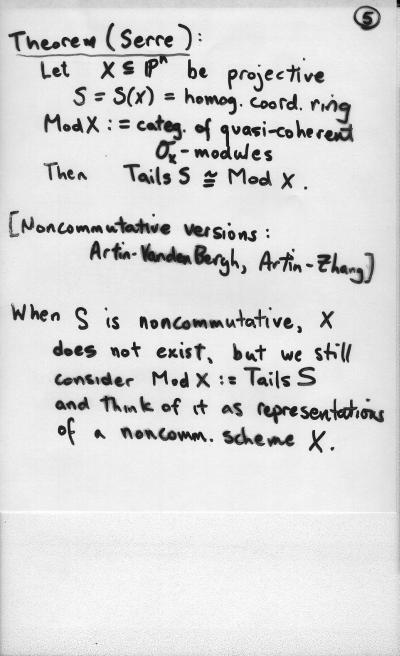 5
Theorem (Serre):
Let X ⊆ ℙⁿ be projective
S = S(X) = homog. coord. ring
Mod X := categ. of quasi-coherent
𝒪ₓ-modules
Then Tails S ≅ Mod X.
[Noncommutative versions:
Artin-Vanden Bergh, Artin-Zhang]
When S is noncommutative, X
does not exist, but we still
consider Mod X := Tails S
and think of it as representations
of a noncomm. scheme X.